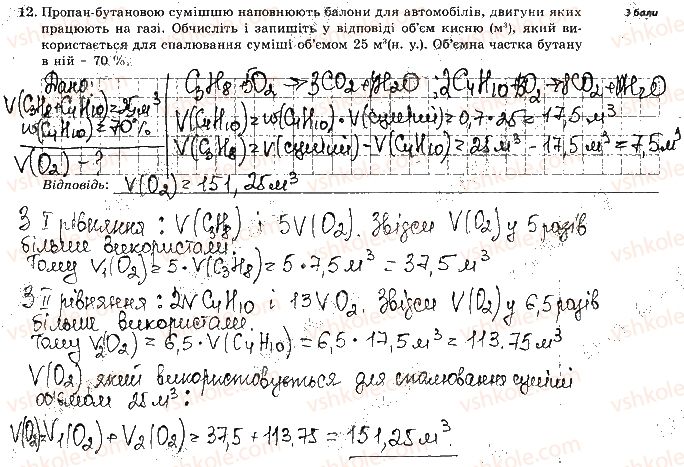 12. Пропан-бутановою сумішшю наповнюють балони для автомобілів, двигуни яких
3 бали
працюють на газі. Обчисліть і запишіть у відповіді об'єм кисню (м³), який ви-
користається для спалювання суміші об'ємом 25 м³(н. у.). Об'ємна частка бутану
в ній – 70 %.
Дано:
C3H8+5O2→3CO2+4H2O; 2C4H10+13O2→8CO2+10H2O
V(C3H8+C4H10)=25м³
V(C4H10)=w(C4H10)·V(суміші)=0,7·25=17,5м³
w(C4H10)=70%
V(C3H8)=V(суміші)-V(C4H10)=25м³-17,5м³=7,5м³
V(O2)-?
Відповідь: V(O2)=151,25м³
З I рівняння: V(C3H8) і 5V(O2). Звідси V(O2) у 5 разів
більше використали.
Тому V1(O2)=5·V(C3H8)=5·7,5м³=37,5м³
З II рівняння: 2VC4H10 і 13VO2. Звідси V(O2) у 6,5 разів
більше використали.
Тому V2(O2)=6,5·V(C4H10)=6,5·17,5м³=113.75м³
V(O2), який використовується для спалювання суміші
об'ємом 25м³:
V(O2)=V1(O2)+V2(O2)=37,5+113,75=151,25м³
vshkole.com